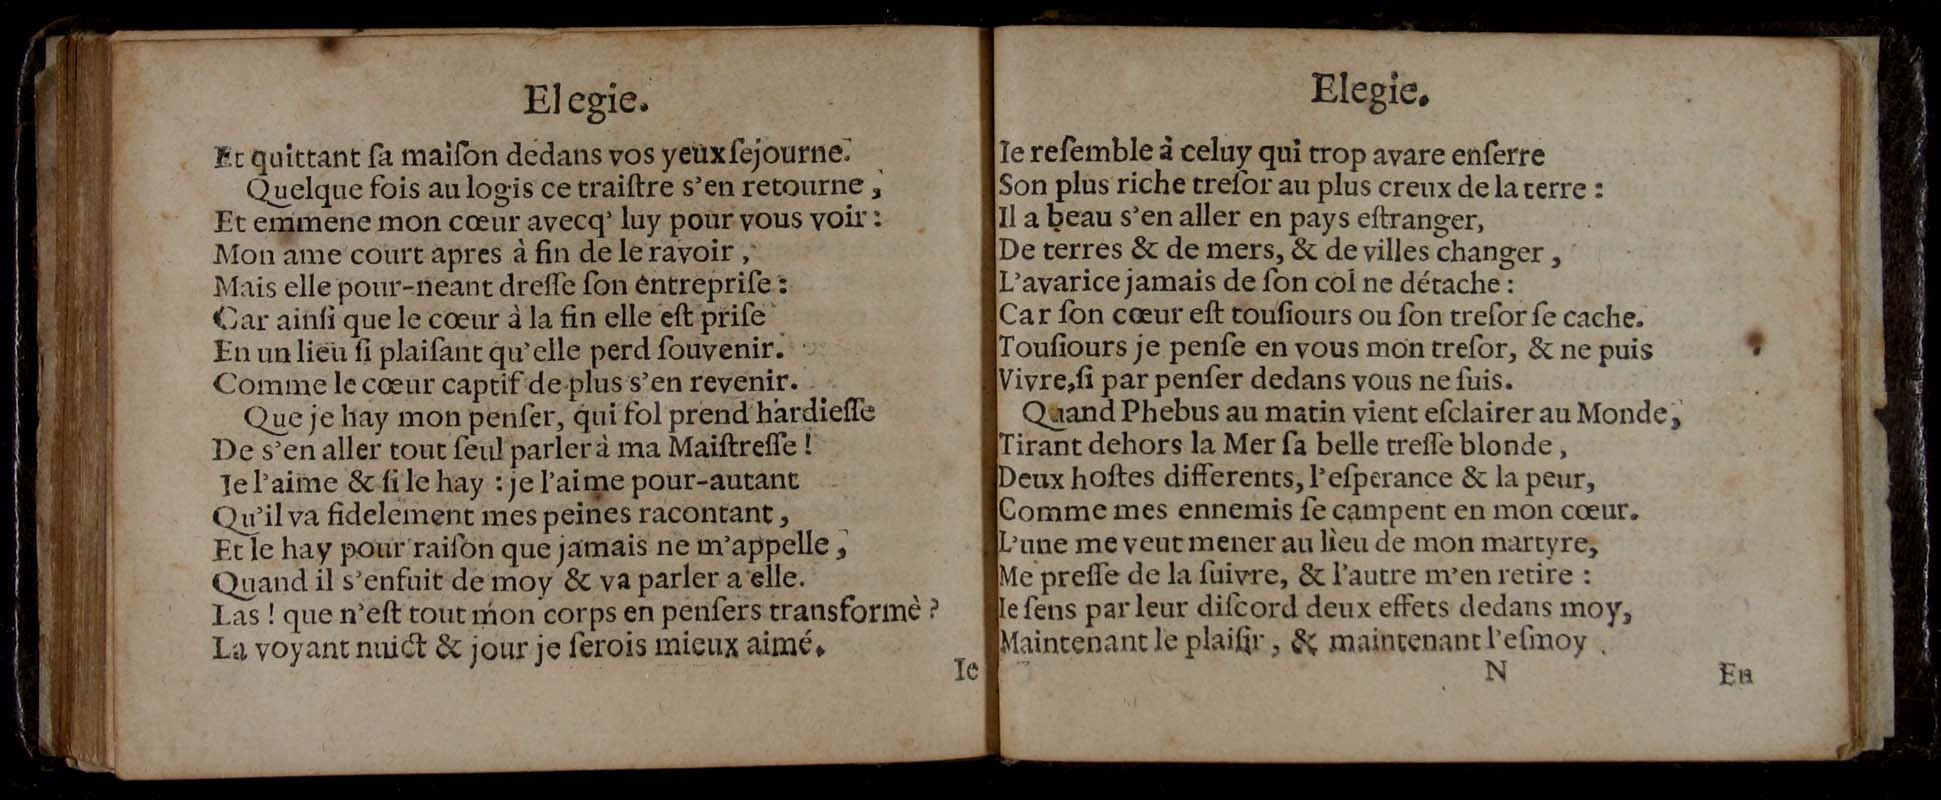 Elegie.
Et quittant ſa maiſon dedans vos yeux ſejourne.
Quelque fois au logis ce traiſtre s'en retourne,
Et emmene mon cœur avecq' luy pour vous voir :
Mon ame court apres à fin de le ravoir,
Mais elle pour-neant dreſſe ſon entrepriſe :
Car ainſi que le cœur à la fin elle eſt priſe
En un lieu ſi plaiſant qu'elle perd ſouvenir.
Comme le cœur captif de plus s'en revenir.
Que je hay mon penſer, qui fol prend hardieſſe
De s'en aller tout ſeul parler à ma Maiſtreſſe !
Ie l'aime & ſi le hay : je l'aime pour-autant
Qu'il va fidelement mes peines racontant,
Et le hay pour raiſon que jamais ne m'appelle,
Quand il s'enfuit de moy & va parler a elle.
Las ! que n'eſt tout mon corps en penſers transformè ?
La voyant nuict & jour je ſerois mieux aimé.
Ie
Elegie.
Ie reſemble à celuy qui trop avare enſerre
Son plus riche treſor au plus creux de la terre :
Il a beau s'en aller en pays eſtranger,
De terres & de mers, & de villes changer,
L'avarice jamais de ſon col ne détache :
Car ſon cœur eſt touſiours ou ſon treſor ſe cache.
Touſiours je penſe en vous mon treſor, & ne puis
Vivre, ſi par penſer dedans vous ne ſuis.
Quand Phebus au matin vient eſclairer au Monde,
Tirant dehors la Mer ſa belle treſſe blonde,
Deux hoſtes differents, l'eſperance & la peur,
Comme mes ennemis ſe campent en mon cœur.
L'une me veut mener au lieu de mon martyre,
Me preſſe de la ſuivre, & l'autre m'en retire :
Ie ſens par leur diſcord deux effets dedans moy,
Maintenant le plaiſir, & maintenant l'eſmoy.
N
En